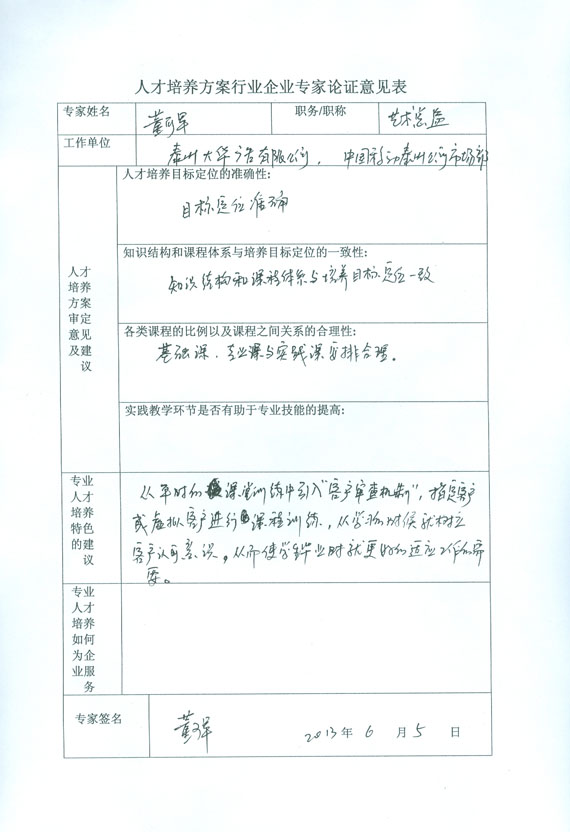 人才培养方案行业企业专家论证意见表
专家姓名 职务/职称 艺术总监
工作单位 泰州大华广告有限公司, 中国移动泰州公司市场部
人才培养方案审定意见及建议
人才培养目标定位的准确性:
目标定位准确
知识结构和课程体系与培养目标定位的一致性:
知识结构和课程体系与培养目标定位一致
各类课程的比例以及课程之间关系的合理性:
基础课、专业课与实践课安排合理。
实践教学环节是否有助于专业技能的提高:
专业人才培养特色的建议
从平时的课堂训练中引入“客户审查机制”,指定客户
或虚拟客户进行课程训练,从学习的时候就树立
客户认可意识,从而使学生毕业时就更好的适应工作的需
要。
专业人才培养如何为企业服务
专家签名
2013年 6 月 5 日